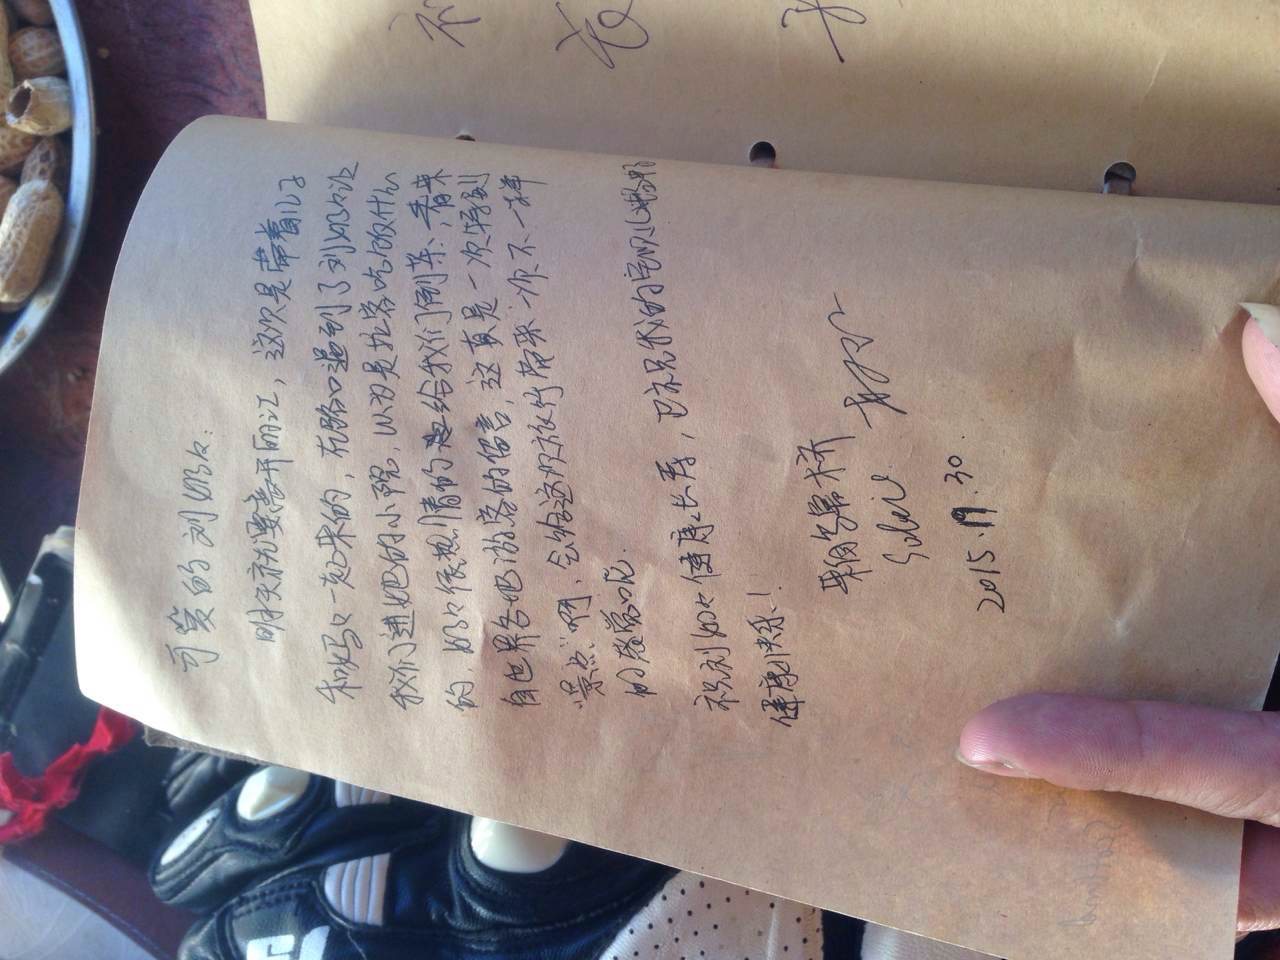 可爱的刘奶々:
明天就要离开丽江，这次是带着儿子
和妈々一起来的，在路口遇到了刘奶々让
我们进她的小院，以为是拉客吃饭什么
的，奶々很热情的给我们倒茶，看来
自世界各地游客的留言，这真是一次特别
“景点”啊，会给这次旅行带来一次不一样
的感觉呢.
祝刘奶々健康长寿，也祝我的宝贝儿
健康快乐！
来自乌鲁木齐
2015.11.30.
Scotland